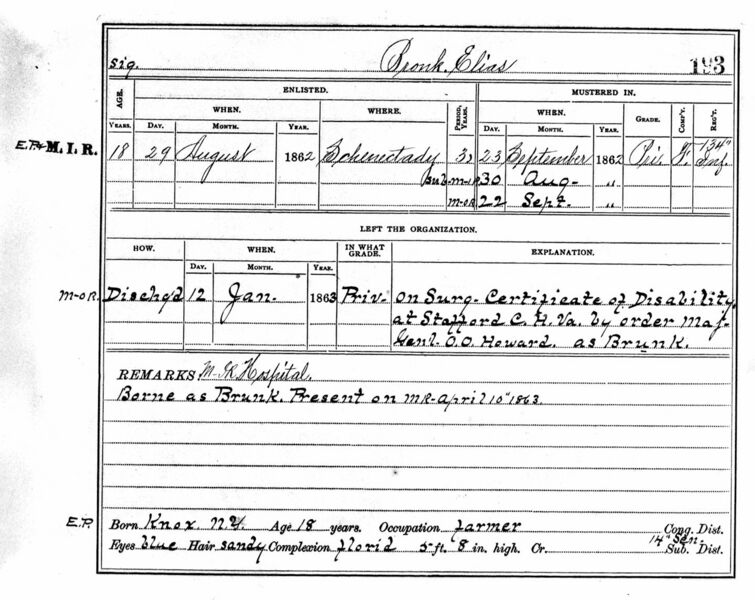 sig. Bronk, Elias 193
AGE. ENLISTED. MUSTERED IN.
WHEN. WHERE. PERIOD, YEARS. WHEN. GRADE. COMP'Y. REG'T.
YEARS. DAY. MONTH. YEAR. DAY. MONTH. YEAR.
E.P.+ M. I. R. 18 29 August 1862 Schenectady 3, 23 September 1862 Pri. F. 134" Inf.
Sub. m-i-R 30 Aug- "
m-o-R 22 Sept. "
LEFT THE ORGANIZATION.
HOW. WHEN. IN WHAT GRADE. EXPLANATION.
DAY. MONTH. YEAR.
m-o-R. Dischg'd 12 Jan. 1863 Priv- on Surg- Certificate of Disability,
at Stafford C. H. Va. by order Maj-
Genl. O.O. Howard. as Brunk.
REMARKS Hospital.
Borne as Brunk. Present on MR-April 10" 1863.
E.P. Born Knox. N.Y. Age 18 years. Occupation farmer Cong. Dist.
14" Sen.
Eyes blue Hair sandy Complexion florid 5 ft. 8 in. high. Cr. Sub. Dist.